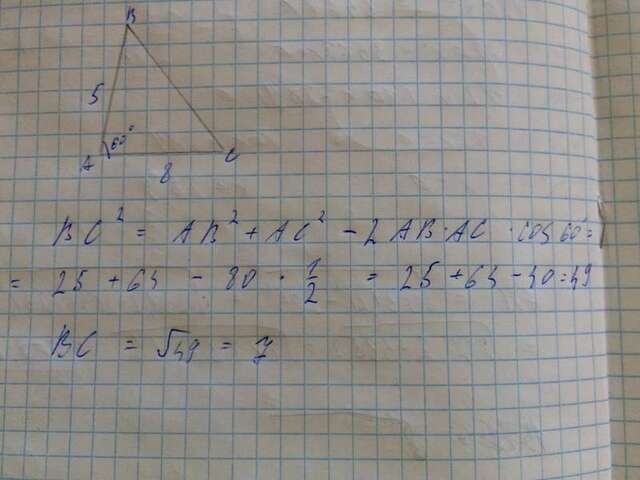 B
5
60°
A
C
8
BC² = AB² + AC² - 2 AB·AC · cos 60° =
= 25 + 64 - 80 · 1/2 = 25 + 64 - 40 = 49
BC = √49 = 7